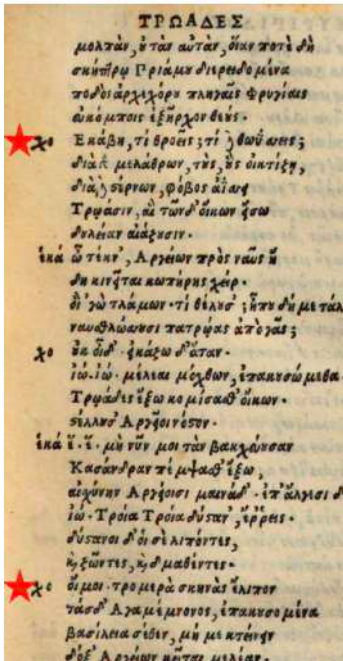 ΤΡΩΑΔΕΣ
μολπὰν, οὐ τὰν αὐτὰν, οἵαν ποτὲ δὴ
σκήπτρῳ Πριάμου διερειδομένα
ποδὸς ἀρχεχόρου πληγαῖς Φρυγίαις
εὐκόμποις ἐξῆρχον θεούς.
χο Ἑκάβη, τί θροεῖς; τί δὲ θωΰσσεις;
διὰ γὰρ μελάθρων, τῆς, ἧς οἰκτίζῃ,
διὰ δὲ στέρνων, φόβος ἀΐσσει
Τρῳάσιν, αἳ τῶνδ' οἴκων ἔσω
δουλείαν αἰάζουσιν.
ἑκά ὦ τέκν', Ἀργείων πρὸς ναῦς ἤ
δη κινεῖται κωπήρης χείρ.
οἲ 'γὼ τλάμων. τί θέλουσ'; ἦπου δή με τάλ
ναυσθλώσουσι πατρῴας ἀπὸ γᾶς;
χο οὐκ οἶδ'. εἰκάζω δ' ἄταν.
ἰώ. ἰώ. μέλεαι μόχθων, ἐπακουσόμεθα.
Τρῳάδες ἔξω κομίσασθ' οἴκων.
στέλλουσ' Ἀργεῖοι νόστον.
ἑκά ἒ. ἒ. μὴ νῦν μοι τὰν βακχεύουσαν
Κασάνδραν πέμψαθ' ἔξω,
αἰσχύνην Ἀργείοισι μαινάδ'. ἐπ' ἄλγεσι δ
ἰώ. Τροία Τροία δύσταν', ἔρρεις.
δύστανοι δ' οἵ σε λιπόντες,
καὶ ζῶντες, καὶ δμαθέντες.
χο οἴμοι. τρομερὰ σκηνὰς ἔλιπον
τάσδ' Ἀγαμέμνονος, ἐπακουσομένα
βασίλεια σέθεν, μή με κτείνειν
δόξ' Ἀργείων κεῖται μελέαν.